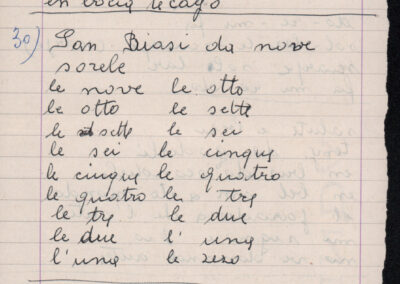 en bocia te cago
30) San Biasi da nove
sorele
le nove le otto
le otto le sette
le sette le sei
le sei le cinque
le cinque le quatro
le quatro le tre
le tre le due
le due l' una
l'una le zero